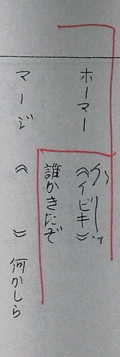 ホーマー　グゥーッ
《イビキ》
誰かきたぞ
マージ　《　　》何かしら